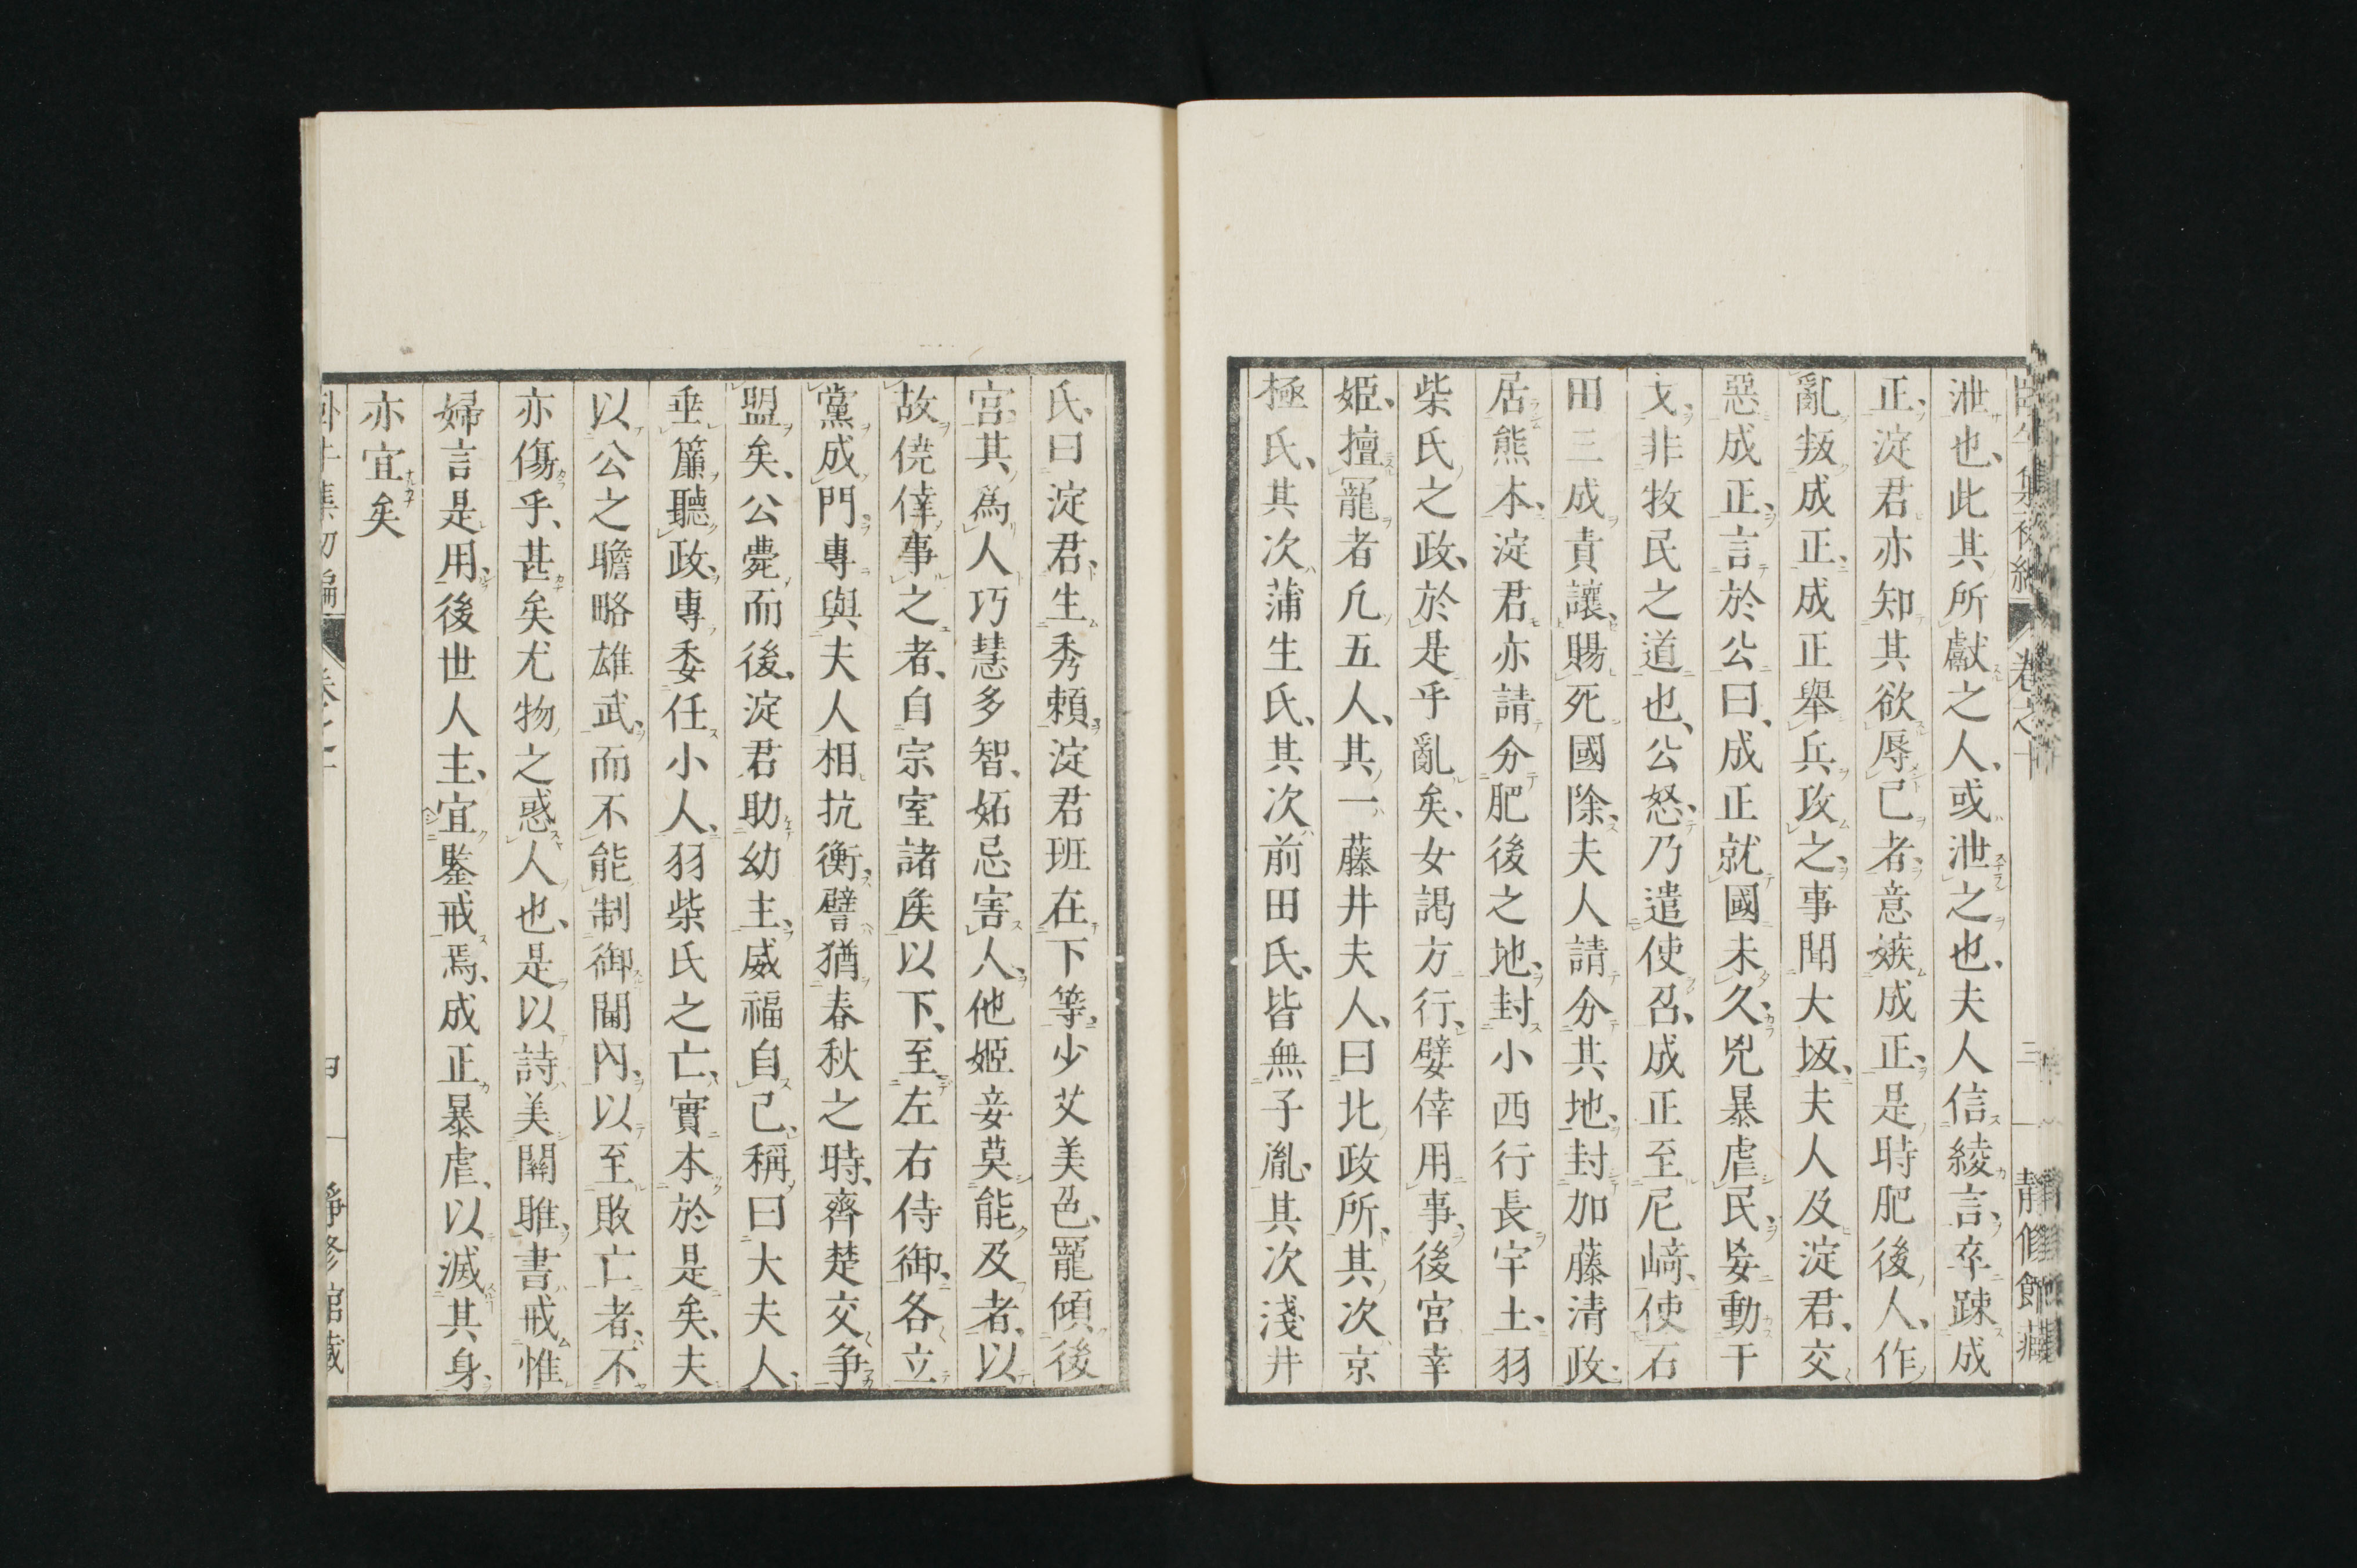 泄也、此其所獻之人、或泄之也、夫人信綾言、卒踈成
正、淀君亦知其欲辱己者、意嫉成正、是時肥後人、作
亂叛成正、成正舉兵攻之、事聞大坂、夫人及淀君、交
惡成正、言於公曰、成正就國未久、兇暴虐民、妄動干
戈、非牧民之道也、公怒、乃遣使召、成正至尼﨑、使石
田三成責讓、賜死國除、夫人請分其地、封加藤清政、
居熊本、淀君亦請分肥後之地、封小西行長宇土、羽
柴氏之政、於是乎亂矣、女謁方行、嬖倖用事、後宮幸
姬、擅寵者凢五人、其一藤井夫人、曰北政所、其次京
極氏、其次蒲生氏、其次前田氏、皆無子胤、其次淺井
氏、曰淀君、生秀賴、淀君班在下等、少艾美色、寵傾後
宮、其為人巧慧多智、妬忌害人、他姬妾莫能及者、以
故僥倖事之者、自宗室諸矦以下、至左右侍御、各立
黨成門、專與夫人相抗衡、譬猶春秋之時、齊楚交爭
盟矣、公薨而後、淀君助幼主、威福自己、稱曰大夫人、
垂簾聽政、專委任小人、羽柴氏之亡、實本於是矣、夫
以公之膽略雄武、而不能制御閫內、以至敗亡者、不
亦傷乎、甚矣尤物之惑人也、是以詩美關雎、書戒惟
婦言是用、後世人主、宜鑒戒焉、成正暴虐、以滅其身、
亦宜矣